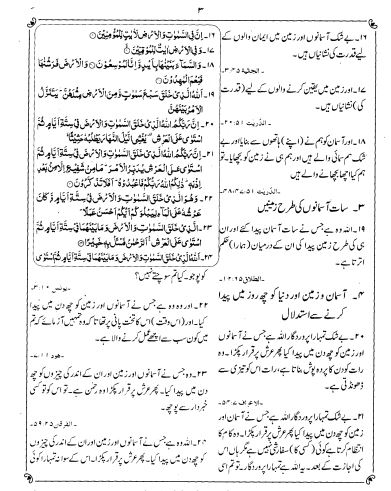 ۳
۱۶۔ بے شک آسمانوں اور زمین میں ایمان والوں کے
لیے قدرت کی نشانیاں ہیں۔
۔الجاثیہ ۳:۴۵
۱۷۔ اور زمین میں یقین کرنے والوں کے لیے (قدرت
کی) نشانیاں ہیں۔
۔الذٰریٰت ۲۰:۵۱
۱۸۔ اور آسمان کو ہم نے (اپنے) ہاتھوں سے بنایا اور بے
شک ہم سمائی والے ہیں اور ہم ہی نے زمین کو بچھایا، تو
ہم کیا اچھا بچھانے والے ہیں۔
۔الذٰریٰت ۴۷:۵۱، ۴۸
۳۔ سات آسمانوں کی طرح زمینیں
۱۹۔ اللہ وہی ہے جس نے سات آسمان پیدا کئے اور ان
ہی کی طرح زمین پیدا کی ان کے درمیان (ہمارا) حکم
اترتا ہے۔
۔الطلاق ۱۲:۶۵
۴۔ آسمان و زمین اور دنیا کو چھ روز میں پیدا
کرنے سے استدلال
۲۰۔ بے شک تمہارا پروردگار اللہ ہے جس نے آسمان
اور زمین کو چھ دن میں پیدا کیا پھر عرش پر قرار پکڑا۔ وہ
رات کو دن کا پردہ پوش بناتا ہے، رات اس کو تیزی سے
ڈھونڈتی ہے۔
۔الاعراف ۵۴:۷
۲۱۔ بے شک تمہارا پروردگار اللہ ہے جس نے آسمان اور
زمین کو چھ دن میں پیدا کیا پھر عرش پر قرار پکڑا۔ وہ کام کا
انتظام کرتا ہے کوئی (کسی کا) سفارشی نہیں ہے مگر ہاں اس
کی اجازت کے بعد۔ یہ اللہ ہے تمہارا پروردگار۔ تو تم اسی
۱۶۔ اِنَّ فِی السَّمٰوٰتِ وَالْاَرْضِ لَاٰیٰتٍ لِّلْمُؤْمِنِیْنَ
۱۷۔ وَفِی الْاَرْضِ اٰیٰتٌ لِّلْمُوْقِنِیْنَ
۱۸۔ وَالسَّمَآءَ بَنَیْنٰهَا بِاَیْىدٍ وَّاِنَّا لَمُوْسِعُوْنَ وَالْاَرْضَ فَرَشْنٰهَا
فَنِعْمَ الْمٰهِدُوْنَ
۱۹۔ اَللّٰهُ الَّذِیْ خَلَقَ سَبْعَ سَمٰوٰتٍ وَّمِنَ الْاَرْضِ مِثْلَهُنَّ یَتَنَزَّلُ
الْاَمْرُ بَیْنَهُنَّ
۲۰۔ اِنَّ رَبَّكُمُ اللّٰهُ الَّذِیْ خَلَقَ السَّمٰوٰتِ وَالْاَرْضَ فِیْ سِتَّةِ اَیَّامٍ ثُمَّ
اسْتَوٰی عَلَی الْعَرْشِ یُغْشِی الَّیْلَ النَّهَارَ یَطْلُبُهٗ حَثِیْثًا
۲۱۔ اِنَّ رَبَّكُمُ اللّٰهُ الَّذِیْ خَلَقَ السَّمٰوٰتِ وَالْاَرْضَ فِیْ سِتَّةِ اَیَّامٍ ثُمَّ
اسْتَوٰی عَلَی الْعَرْشِ یُدَبِّرُ الْاَمْرَ مَا مِنْ شَفِیْعٍ اِلَّا مِنْ بَعْدِ
اِذْنِهٖ ذٰلِكُمُ اللّٰهُ رَبُّكُمْ فَاعْبُدُوْهُ اَفَلَا تَذَكَّرُوْنَ
۲۲۔ وَهُوَ الَّذِیْ خَلَقَ السَّمٰوٰتِ وَالْاَرْضَ فِیْ سِتَّةِ اَیَّامٍ وَّكَانَ
عَرْشُهٗ عَلَی الْمَآءِ لِیَبْلُوَكُمْ اَیُّكُمْ اَحْسَنُ عَمَلًا
۲۳۔ الَّذِیْ خَلَقَ السَّمٰوٰتِ وَالْاَرْضَ وَمَا بَیْنَهُمَا فِیْ سِتَّةِ اَیَّامٍ ثُمَّ
اسْتَوٰی عَلَی الْعَرْشِ اَلرَّحْمٰنُ فَسْـَٔلْ بِهٖ خَبِیْرًا
۲۴۔ اَللّٰهُ الَّذِیْ خَلَقَ السَّمٰوٰتِ وَالْاَرْضَ وَمَا بَیْنَهُمَا فِیْ سِتَّةِ اَیَّامٍ ثُمَّ اسْتَوٰی
کو پوجو۔ کیا تم سوچتے نہیں؟
۔یونس ۳:۱۰
۲۲۔ اور وہ وہ ہے جس نے آسمانوں اور زمین کو چھ دن میں پیدا
کیا۔ اور (اس وقت) اس کا تخت پانی پر تھا تا کہ وہ تمہیں آزمائے کہ تم
میں کون سب سے اچھے عمل کرنے والا ہے۔
۔ہود ۷:۱۱
۲۳۔ وہ ہے جس نے آسمانوں اور زمین اور ان کے اندر کی چیزوں کو چھ
دن میں پیدا کیا۔ پھر عرش پر قرار پکڑا وہ رحمٰن ہے۔ تو اس کو تو کسی
خبردار سے پوچھ۔
۔الفرقان ۵۹:۲۵
۲۴۔ اللہ وہ ہے جس نے آسمانوں اور زمین اور ان کے اندر کی چیزوں کو
چھ دن میں پیدا کیا۔ پھر عرش پر قرار پکڑا۔ اس کے سوا نہ تمہارا کوئی